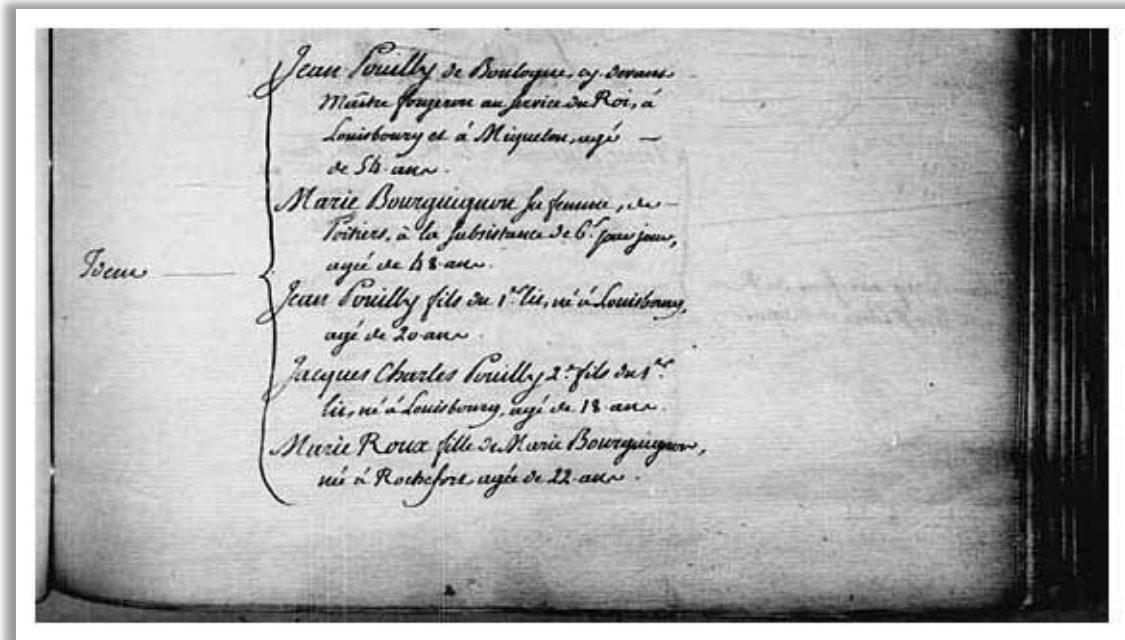 Jean Pouilly de Boulogne, cy devant
Maitre forgeron au service du Roi, à
Louisbourg et à Miquelon, agé
de 54 ans.
Marie Bourguignon sa femme, de
Poitiers, à la subsistance de 6.s par jour,
agée de 48 ans.
Idem
Jean Pouilly fils du 1.er lit, né à Louisbourg,
agé de 20 ans.
Jacques Charles Pouilly 2.e fils du 1.er
lit, né à Louisbourg, agé de 18 ans.
Marie Roux fille de Marie Bourguignon,
née à Rochefort, agée de 22 ans.